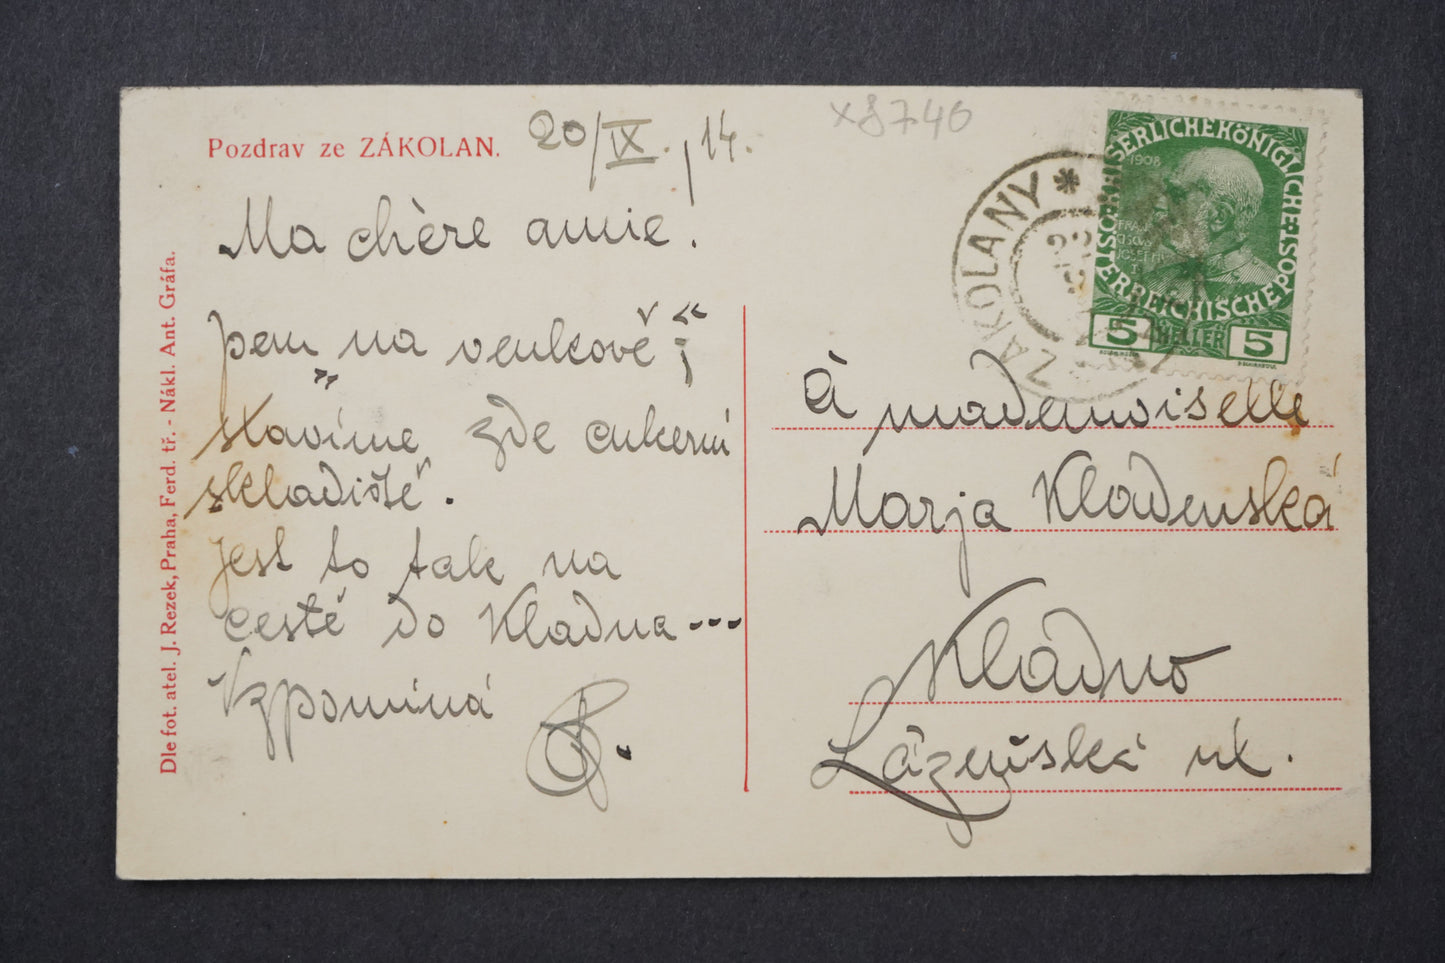 x8746
Pozdrav ze ZÁKOLAN. 20/IX./14.
Ma chère amie!
Jsem „na venkově“;
stavíme zde cukerní
skladiště.
Jest to tak na
cestě do Kladna...
Vzpomíná
Dle fot. atel. J. Rezek, Praha, Ferd. tř. - Nákl. Ant. Gráfa.
ZÁKOLANY *
KAISERLICHE KÖNIGLICHE
ÖSTERREICHISCHE POST
1908
5 HELLER 5
À mademoiselle
Marja Kladenská
Kladno
Lázeňská ul.